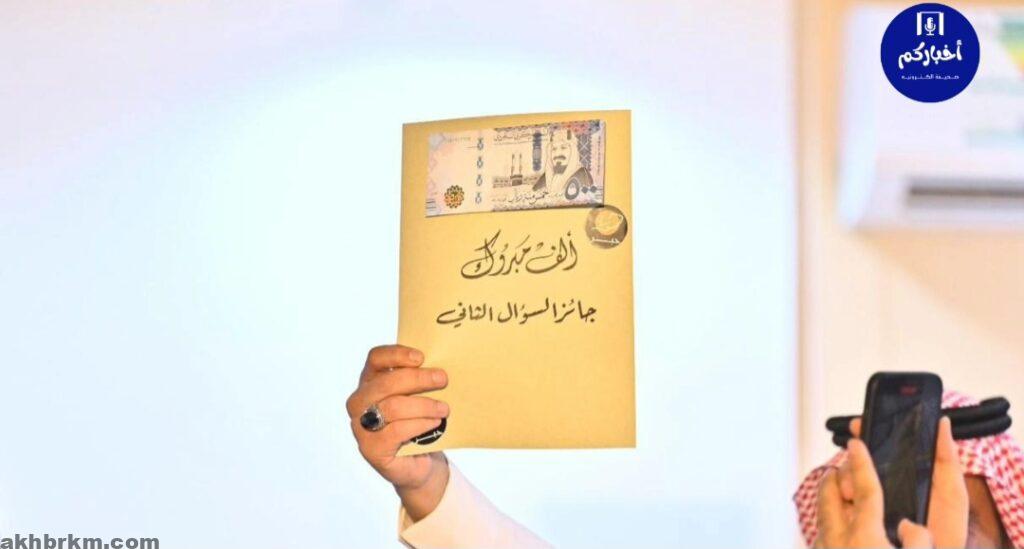 أخباركم
صحيفة الكترونيه
٥٠٠
ألف مبروك
جائزالسؤال الثاني
akhbrkm.com